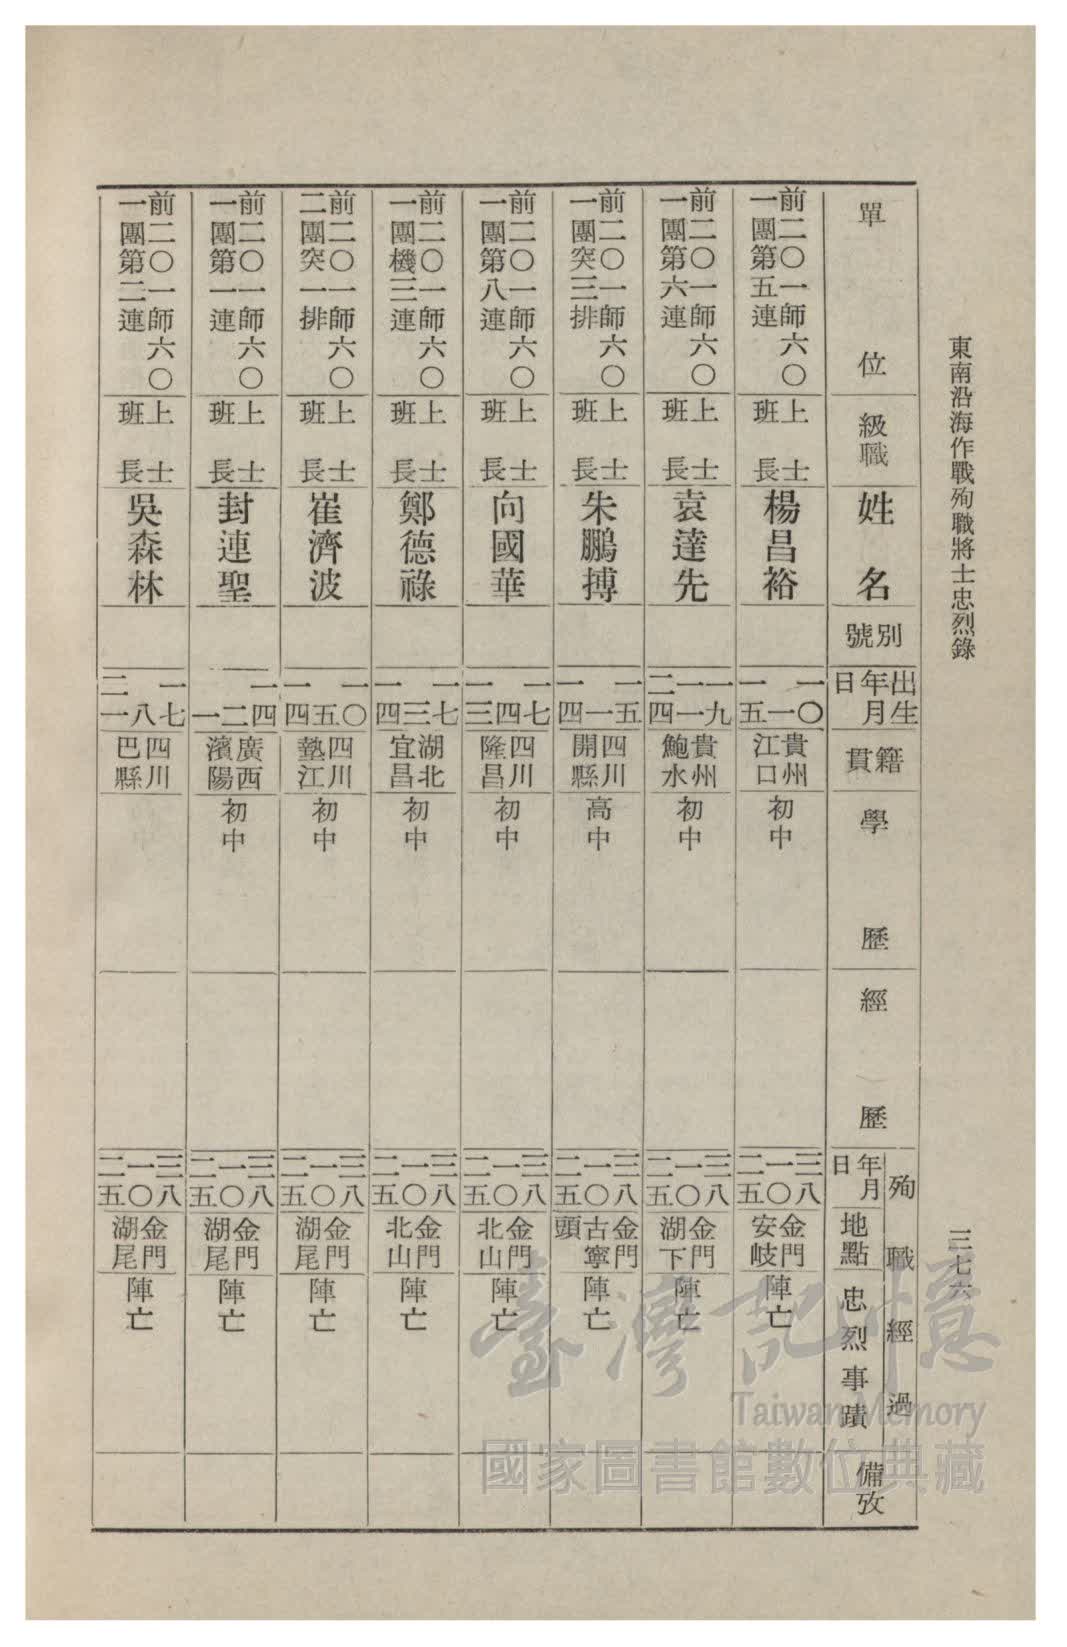 東南沿海作戰殉職將士忠烈錄
三七六
單位
級職
姓名
別號
出生
年月
日
籍貫
學歷
經歷
殉職經過
年月
日
地點
忠烈事蹟
備攷
前二〇一師六〇
一團第五連
上士
班長
楊昌裕
一〇
一
一五
貴州
江口
初中
三八
一〇
二五
金門
安岐
陣亡
前二〇一師六〇
一團第六連
上士
班長
袁達先
一九
一一
二四
貴州
鮑水
初中
三八
一〇
二五
金門
湖下
陣亡
前二〇一師六〇
一團突三排
上士
班長
朱鵬搏
一五
一
一四
四川
開縣
高中
三八
一〇
二五
金門
古寧
頭
陣亡
前二〇一師六〇
一團第八連
上士
班長
向國華
一七
四
一三
四川
隆昌
初中
三八
一〇
二五
金門
北山
陣亡
前二〇一師六〇
一團機三連
上士
班長
鄭德祿
一七
三
一四
湖北
宜昌
初中
三八
一〇
二五
金門
北山
陣亡
前二〇一師六〇
二團突一排
上士
班長
崔濟波
一〇
五
一四
四川
墊江
初中
三八
一〇
二五
金門
湖尾
陣亡
前二〇一師六〇
一團第一連
上士
班長
封連聖
一四
二
一
廣西
濱陽
初中
三八
一〇
二五
金門
湖尾
陣亡
前二〇一師六〇
一團第二連
上士
班長
吳森林
一七
八
二一
四川
巴縣
初中
三八
一〇
二五
金門
湖尾
陣亡
臺灣記憶
Taiwan Memory
國家圖書館數位典藏